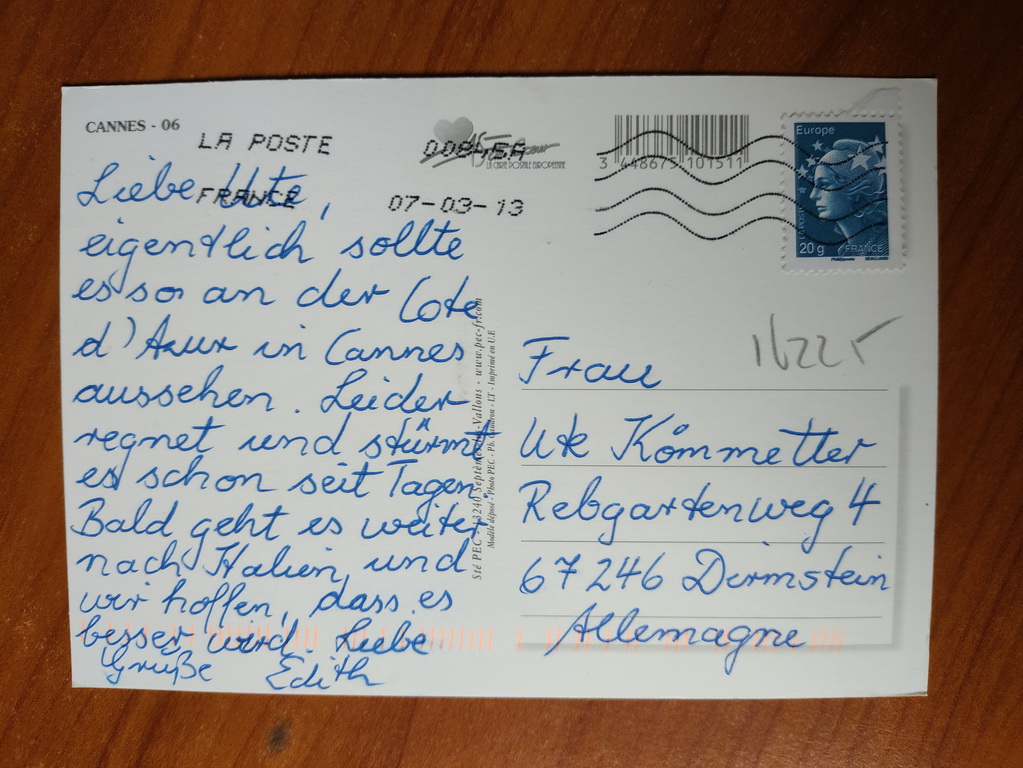 CANNES - 06
LA POSTE
FRANCE
07-03-13
LA CARTE POSTALE EUROPEENNE
3 448675 101511
Europe
20 g
FRANCE
Liebe Ute,
eigentlich sollte
es so an der Cote
d'Azur in Cannes
aussehen. Leider
regnet und stürmt
es schon seit Tagen.
Bald geht es weiter
nach Italien, und
wir hoffen, dass es
besser wird. Liebe
Grüße Edith
www.pec-fr.com
Imprimé en U.E
Frau
Ute Kömmetter
Rebgartenweg 4
67246 Dirmstein
Allemagne